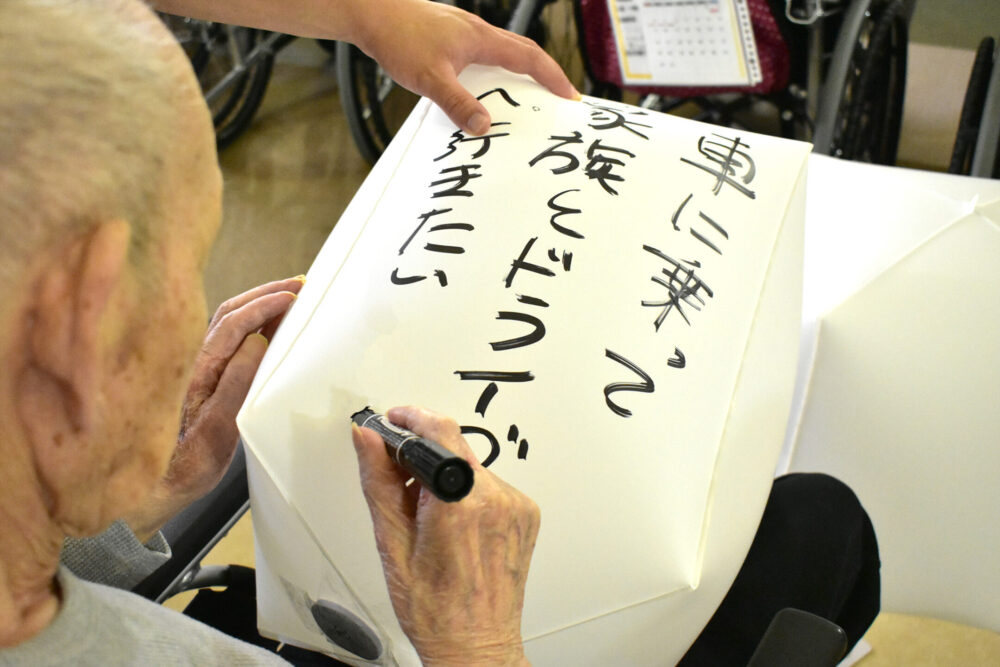 車に乗って
家族とドライブ
へ行きたい